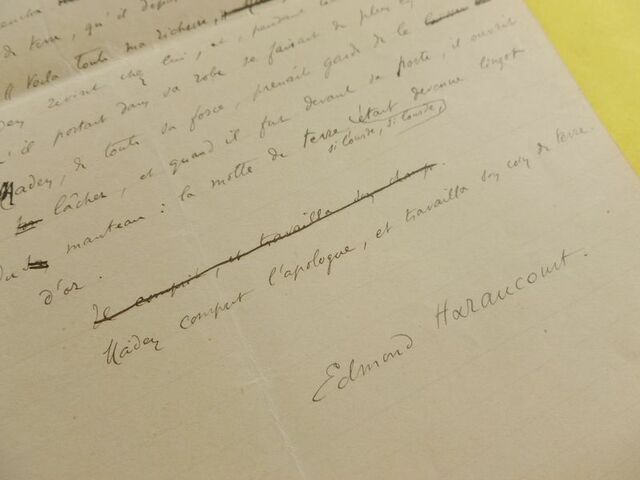 de terre, qu'il
Voila toute ma richesse,
revint chez lui, et, pendant
qu'il portait dans sa robe se faisait de plus en
Hadey, de toute sa force, prenait garde de la
lâcher, et quand il fut devant sa porte, il ouvrit
manteau : la motte de terre si lourde, si lourde, était devenue lingot
d'or.
Il comprit, et travailla son champ.
Hadey comprit l'apologue, et travailla son coin de terre.
Edmond Haraucourt.